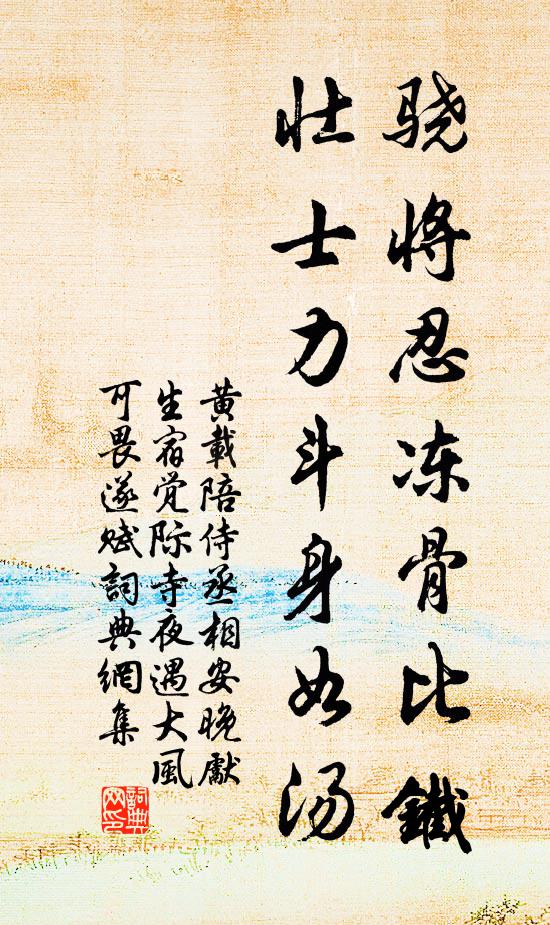 骁将忍冻骨比鐵
壮士力斗身如汤
黄載陪侍丞相安晚獻
生宿觉际寺夜遇大風
可畏遂赋詞典網集
詞典網印